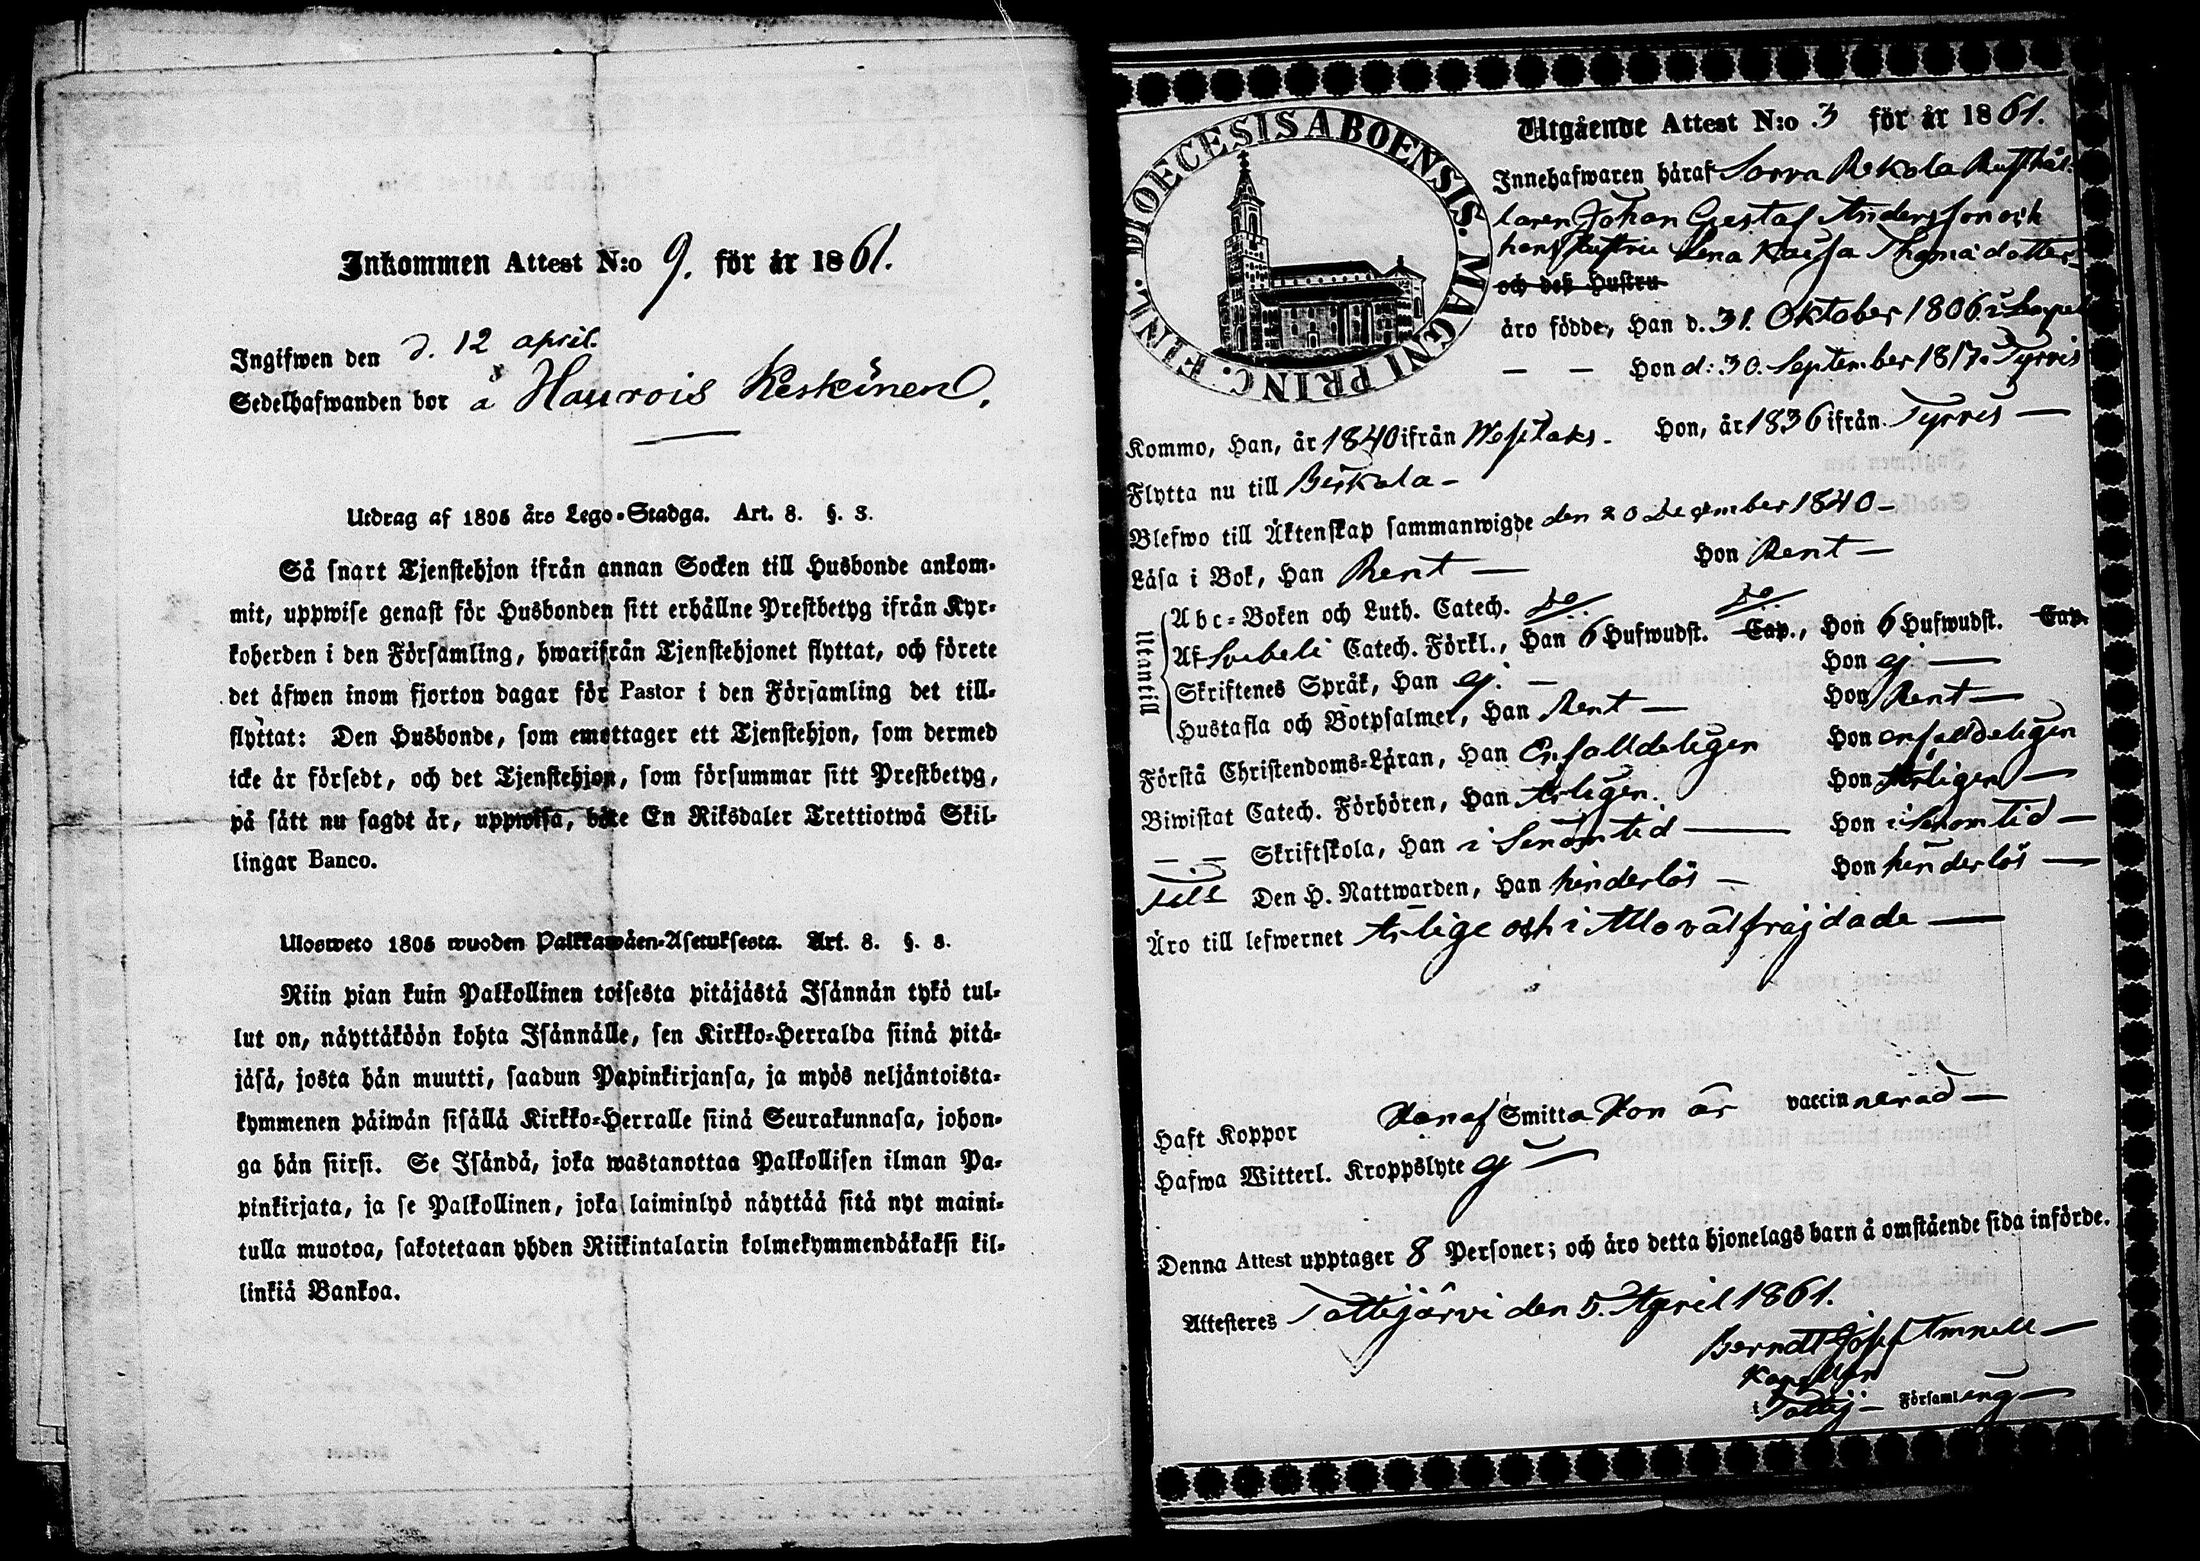 Inkommen Attest N:o 9. för år 1861.
Ingifwen den d. 12 april.
Sedelhafwanden bor å Haurois Keskinen.
Utdrag af 1805 års Lego-Stadga. Art. 8. §. 3.
Så snart Tjenstehjon ifrån annan Socken till Husbonde ankom-
mit, uppwise genast för Husbonden sitt erhållne Prestbetyg ifrån Kyr-
koherden i den Församling, hwarifrån Tjenstehjonet flyttat, och förete
det äfwen inom fjorton dagar för Pastor i den Församling det till-
flyttat: Den Husbonde, som emottager ett Tjenstehjon, som dermed
icke är försedt, och det Tjenstehjon, som försummar sitt Prestbetyg,
på sätt nu sagdt är, uppwisa, böte En Riksdaler Trettiotwå Skil-
lingar Banco.
Ulosweto 1805 wuoden Palkkawäen-Asetuksesta. Art. 8. §. 3.
Niin pian kuin Palkollinen toisesta pitäjästä Isännän tykö tul-
lut on, näyttäköön kohta Isännälle, sen Kirkko-Herralda siinä pitä-
jäsä, josta hän muutti, saadun Papinkirjansa, ja myös neljäntoista-
kymmenen päiwän sisällä Kirkko-Herralle siinä Seurakunnasa, johon-
ga hän siirsi. Se Isändä, joka wastanottaa Palkollisen ilman Pa-
pinkirjata, ja se Palkollinen, joka laiminlyö näyttää sitä nyt maini-
tulla muotoa, sakotetaan yhden Riikintalarin kolmekymmendäkaksi kil-
linkiä Bankoa.
DIOECESIS ABOENSIS. MAGNI PRINC. FINL.
Utgående Attest N:o 3 för år 1861.
Innehafwaren häraf Sorva Rekola Rusthål-
laren Johan Gustaf Andersson och
hans hustru Lena Kaisa Thomädotter
och dess Hustru
äro födde, Han d. 31. Oktober 1806 i
— — Hon d: 30. September 1817. Tyrvis
Kommo, Han, år 1840 ifrån Westlaks. Hon, år 1836 ifrån Tyrvis —
Flytta nu till Birkala —
Blefwo till Äktenskap sammanwigde den 20 December 1840 —
Läsa i Bok, Han Rent — Hon Rent —
Utantill
Abc-Boken och Luth. Catech. do/. do/.
Af Svebeli Catech. Förkl., Han 6 Hufwudst. Cap., Hon 6 Hufwudst. Cap.
Skriftenes Språk, Han ej. — Hon ej —
Hustafla och Botpsalmer, Han Rent — Hon Rent —
Förstå Christendoms-Läran, Han Enfalldeligen Hon enfalldeligen
Biwistat Catech. Förhören, Han Årligen. Hon Årligen —
— — Skriftskola, Han i Sinom tid — Hon i Sinom tid —
Till Den H. Nattwarden, Han hinderlös — Hon hinderlös —
Äro till lefwernet Ärlige och i Allo välfräjdade —
Haft Koppor Han af Smitta Hon är vaccinnerad —
Hafwa Witterl. Kroppslyte ej —
Denna Attest upptager 8 Personer; och äro detta hjonelags barn å omstående sida införde.
Attesteres Tottijärvi den 5. April 1861.
Berndt Josef Amnell —
Kapellan
i Tottij — Församling —